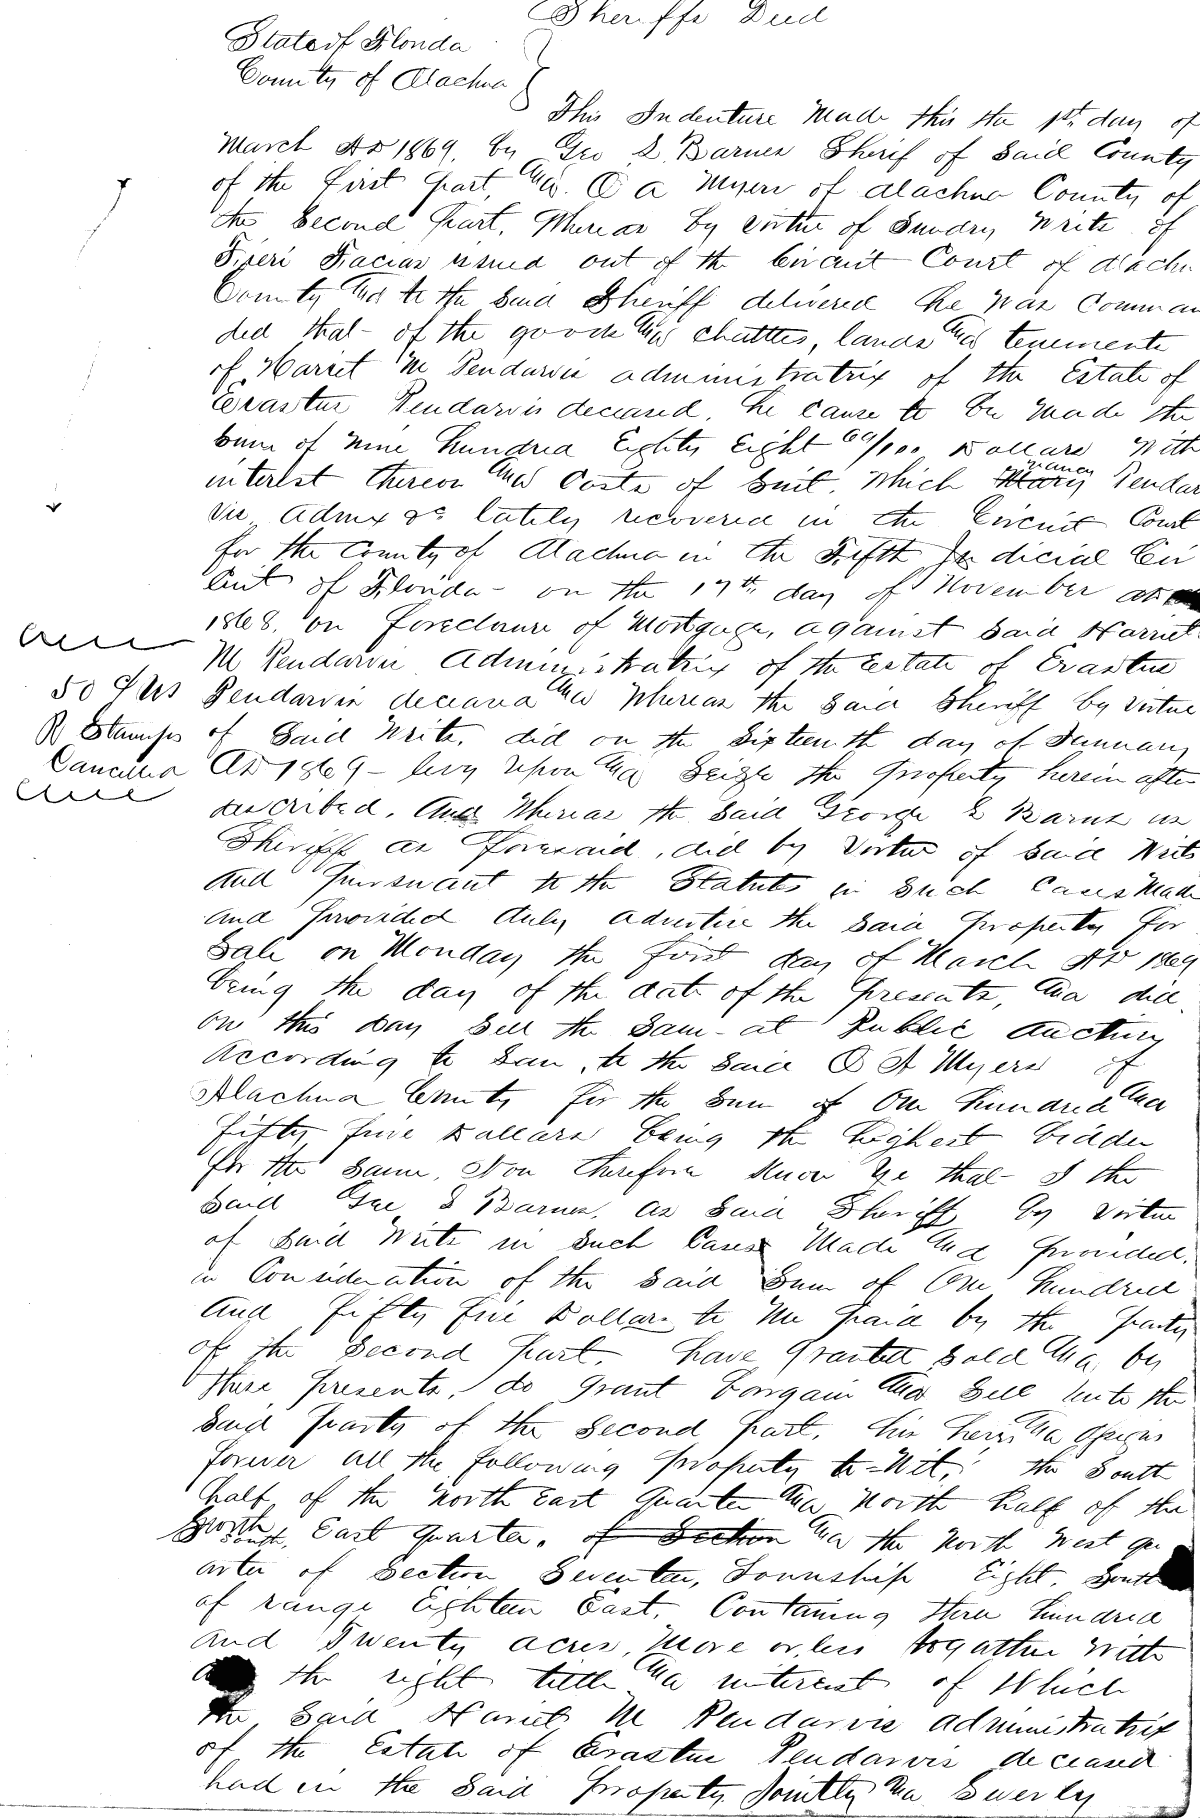 Sheriffs Deed
State of Florida
County of Alachua
This Indenture Made this the 1st day of
March AD 1869, by Geo S. Barnes Sherif of Said County
of the first part, And. O A Myers of Alachua County of
the Second Part, Whereas by virtue of Sundry Writs of
Fieri Facias issued out of the Circuit Court of Alachu
County And to the Said Sheriff delivered he was Comman
ded that of the goods And chattles, lands And tenements
of Harriet M Pendarvis administratrix of the Estate of
Erastus Pendarvis deceased. he cause to be Made the
Sum of Nine hundred Eighty Eight 69/100 Dollars With
interest thereon And Costs of Suit. Which Mary Nancy Pendar
vis Admx &c lately recovered in the Circuit Court
for the County of Alachua in the Fifth Judicial Cir
cuit of Florida - on the 17th day of November AD
1868, on foreclosure of Mortgage, against Said Harriet
M Pendarvis Administratrix of the Estate of Erastus
Pendarvis deceased And Whereas the Said Sheriff by virtue
of Said Writs, did on the Sixteenth day of January
AD 1869 - levy upon And Seize the property herein after
described. And Whereas the Said George S Barnes as
Sheriff as foresaid, did by Virtue of Said Writs
And pursuant to the Statutes in Such Cases Made
and provided duly advertise the Said property for
Sale on Monday the first day of March AD 1869
being the day of the date of the presents, And did
on this day Sell the Same - at Public Auction
According to Law, to the Said O A Myers of
Alachua County for the Sum of One hundred And
fifty five Dollars being the highest bidder
for the Same. Now therefore Know Ye that I the
Said Geo S Barnes. as Said Sheriff by virtue
of Said Writs in Such Cases Made And provided.
in Consideration of the Said Sum of One hundred
And fifty five Dollars to Me paid by the party
of the Second part. have granted Sold And by
these presents, do grant bargain And Sell Unto the
Said party of the Second part, his heirs And assigns
forever all the following property to-Wit; the South
half of the North East quarter And North half of the
South East quarter. of Section And the North West qu
arter of Section Seventeen, Township Eight, South
of range Eighteen East. Containing three hundred
and Twenty acres, More or less togather With
the right tittle And interest of Which
the Said Hariet M Pendarvis administratrix
of the Estate of Erastus Pendarvis deceased
had in the Said Property Jointly And Severly
50 cts
R Stamps
Cancelled